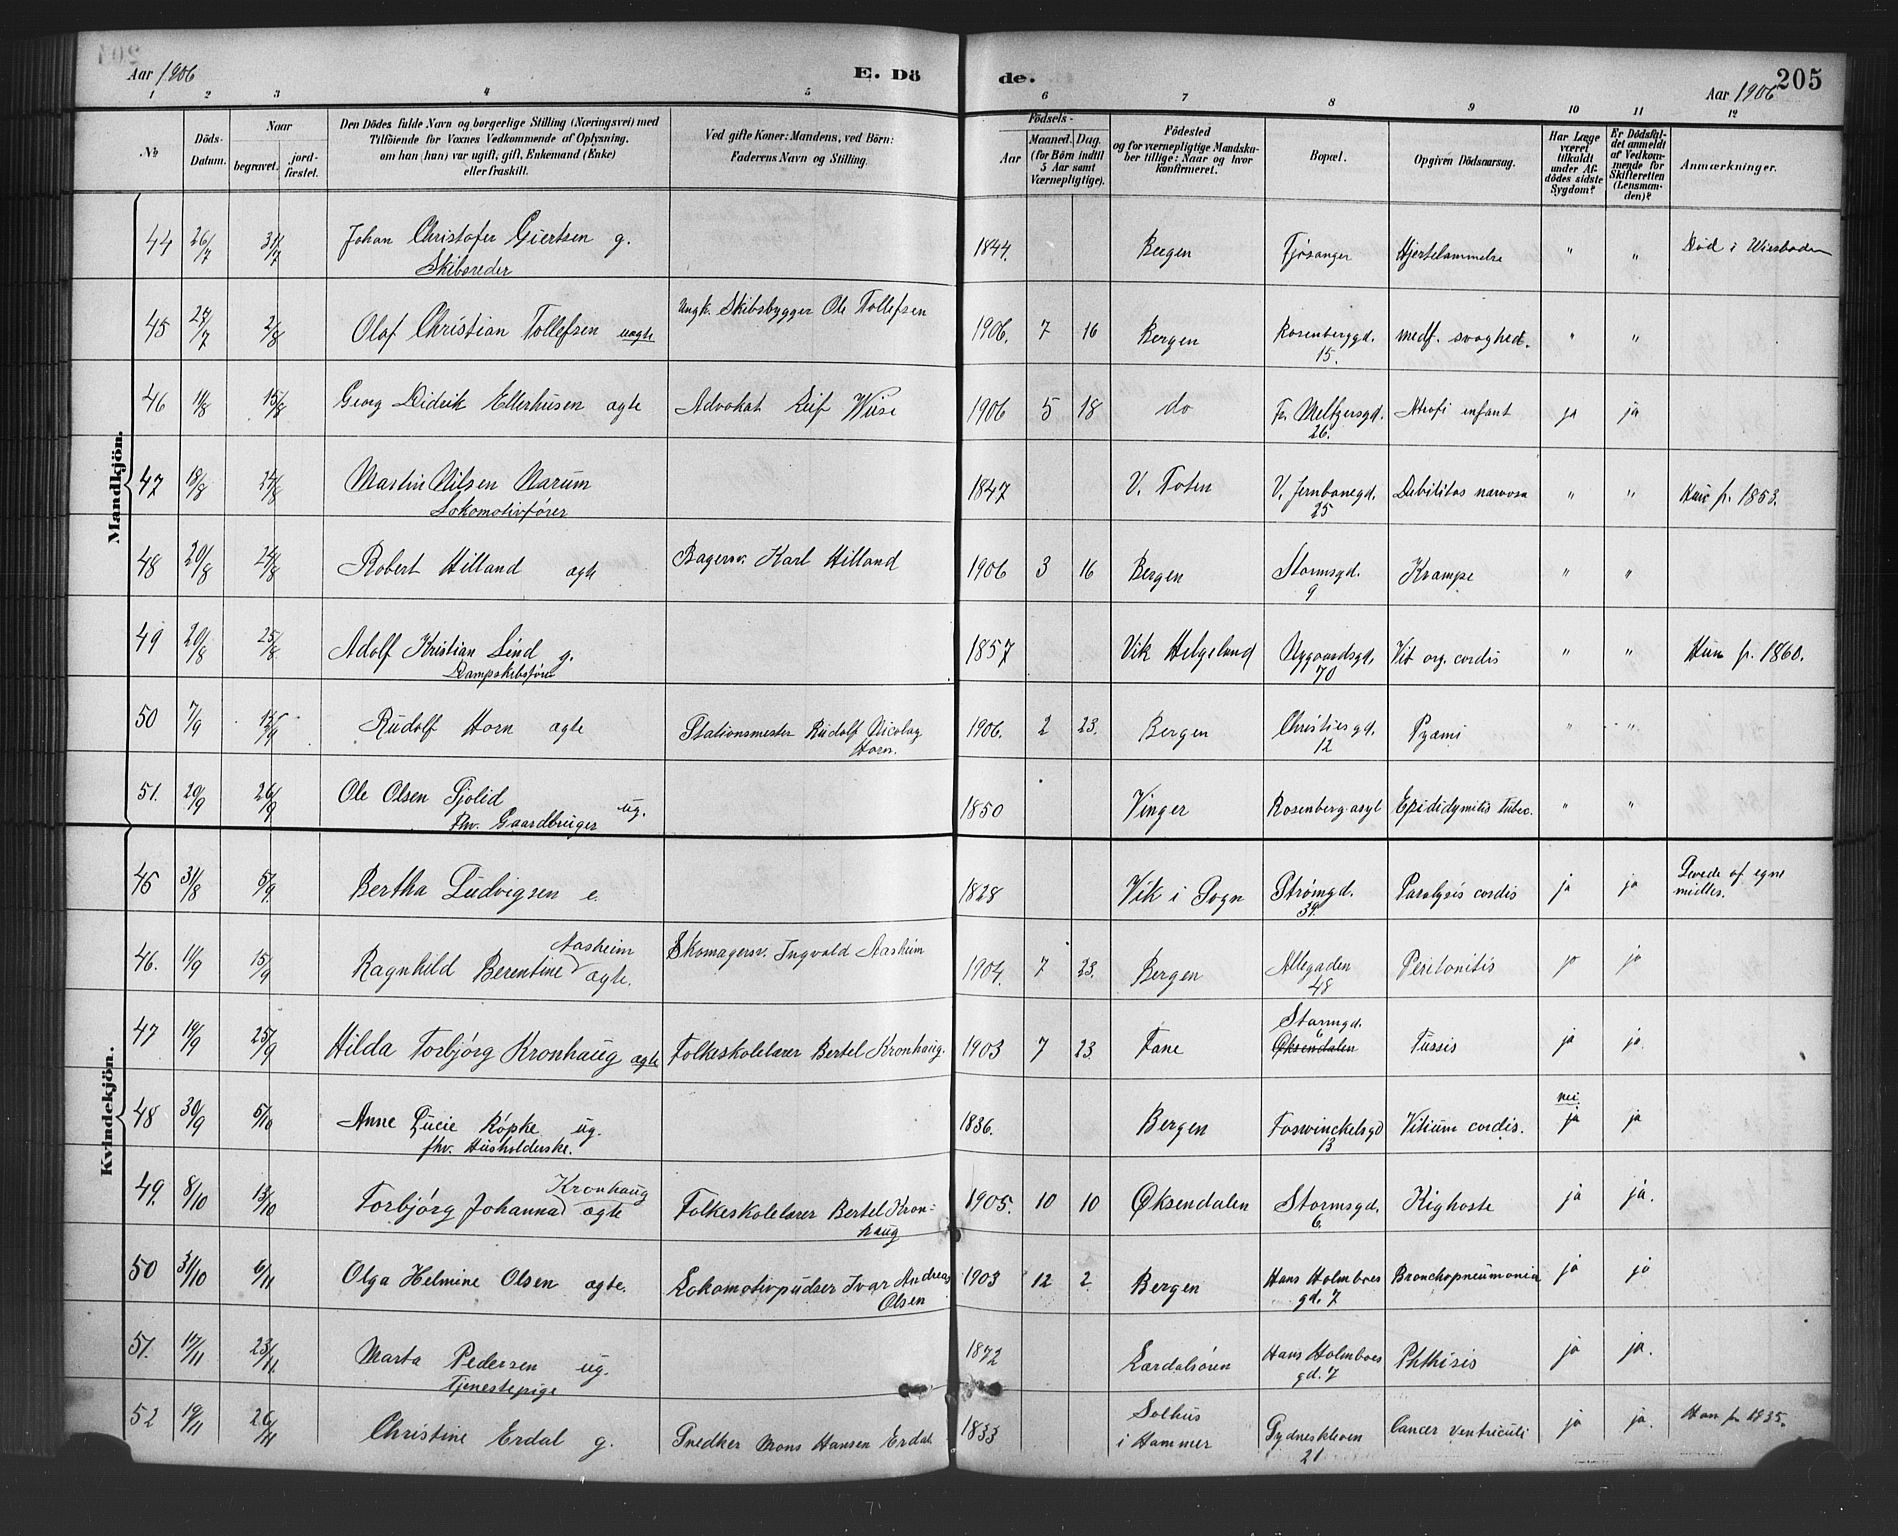 Aar 1906
E. Dö
de.
Aar 1906
205
1 2 3 4 5 6 7 8 9 10 11 12
No
Döds-Datum.
Naar
begravet.
jord-fæstet.
Den Dödes fulde Navn og borgerlige Stilling (Næringsvei) med
Tilföiende for Voxnes Vedkommende af Oplysning.
om han (hun) var ugift, gift, Enkemand (Enke)
eller fraskilt.
Ved gifte Koner: Mandens, ved Börn:
Faderens Navn og Stilling.
Födsels-
Aar
Maaned. Dag.
(for Börn indtil
5 Aar samt
Værnepligtige).
Födested
og for værnepligtige Mandskaber tillige: Naar og hvor
konfirmeret.
Bopæl.
Opgiven Dödsaarsag.
Har Læge
været
tilkaldt
under Afdödes sidste
Sygdom?
Er Dödsfaldet anmeldt
af Vedkommende for
Skifteretten
(Lensmanden)?
Anmærkninger.
Mandkjön.
44 26/7 31/7 Johan Christofer Giertsen g. 1844. Bergen Fjøsanger Hjertelammelse " " Död i Wiesbaden
Skibsreder
45 27/7 2/8 Olaf Christian Tollefsen uægte Ungk. Skibsbygger Ole Tollefsen 1906. 7 16 Bergen Rosenberggd. 15. medf. svaghed. " "
46 11/8 15/8 Georg Didrik Ellerhusen ægte Advokat Leif Wiese 1906 5 18 do Fr. Meltzersgd. 26. Atrofi infant ja ja
47 18/8 24/8 Martin Nilsen Narum 1847 V. Toten V. Jernbanegd. 25 Debilitas narvosa " " Hun f. 1853.
Lokomotivfører
48 20/8 24/8 Robert Hilland ægte Bagersv. Karl Hilland 1906 3 16 Bergen Stormsgd. 9 Krampe " "
49 20/8 25/8 Adolf Kristian Lind g. 1857 Vik Helgeland Nygaardsgd. 70 Vit org. cordis " " Hun f. 1860.
Dampskibsfører
50 7/9 12/9 Rudolf Horn ægte Stationsmester Rudolf Nicolay Horn. 1906. 2 23. Bergen Christiesgd. 12 Pyæmi " "
51. 20/9 26/9 Ole Olsen Sjolid ug. 1850 Vinger Rosenberg asyl Epididymitis tuberc. " "
fhv. Gaardbruger
Kvindekjön.
45 31/8 5/9 Bertha Ludvigsen e. 1828 Vik i Sogn Strømgd. 34. Paralysis cordis ja ja Levede af egne midler.
46. 11/9 15/9 Ragnhild Berentine Aasheim ægte. Skomagersv. Ingvald Aasheim 1904. 7 23. Bergen Allegaden 48 Peritonitis ja ja
47 19/9 25/9 Hilda Torbjörg Kronhaug ægte Folkeskolelærer Bertel Kronhaug. 1903 7 23 Fane Stormgd. 6 Øksendalen Tussis ja ja.
48 30/9 5/10 Anne Lucie Röpke ug. 1836. Bergen Foswinckelsgd 13 Vitium cordis. nei. ja ja
fhv. Husholderske.
49. 8/10 13/10 Torbjörg Johanna Kronhaug ægte Folkeskolelærer Bertel Kronhaug 1905. 10 10 Øksendalen Stormsgd. 6. Kighoste ja ja.
50 31/10 6/11 Olga Helmine Olsen ægte. Lokomotivpudser Ivar Andreas Olsen 1903 12 2. Bergen Hans Holmboes gd. 7 Bronchopneumonia ja ja
51. 17/11 23/11 Marta Pedersen ug. 1872 Lærdalsören Hans Holmboes gd. 7 Phthisis ja ja.
Tjenestepige
52 19/11 26/11 Christine Erdal g. Snedker Mons Hansen Erdal 1833 Salhus i Hammer Sydneskleven 21 Cancer ventriculi ja ja. Han f. 1835.